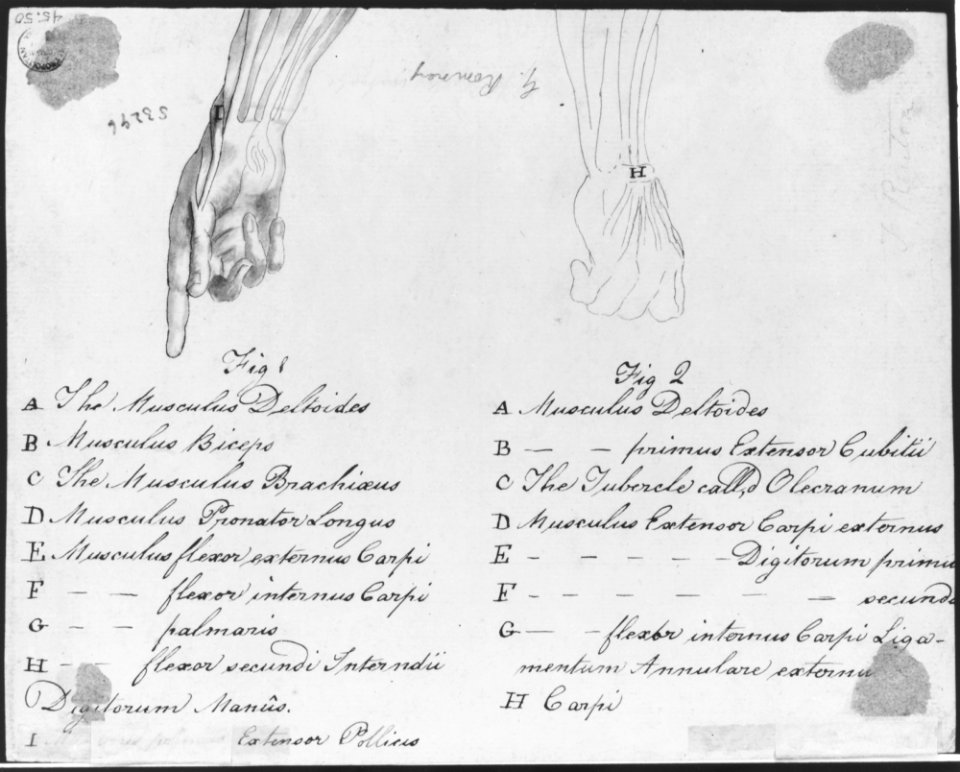 45.50
53296
G. Romney
I
H
Fig 1
A The Musculus Deltoides
B Musculus Biceps
C The Musculus Brachiæus
D Musculus Pronator Longus
E Musculus flexor externus Carpi
F — — flexor internus Carpi
G — — palmaris
H — — flexor secundi Interndii
Digitorum Manûs.
I Extensor Pollicus
Fig 2
A Musculus Deltoides
B — — primus Extensor Cubitii
C The Tubercle call,d Olecranum
D Musculus Extensor Carpi externus
E - — — — — Digitorum primu
F - - - - - — — secund
G — — flexor internus Carpi Liga-
mentum Annulare externu
H Carpi